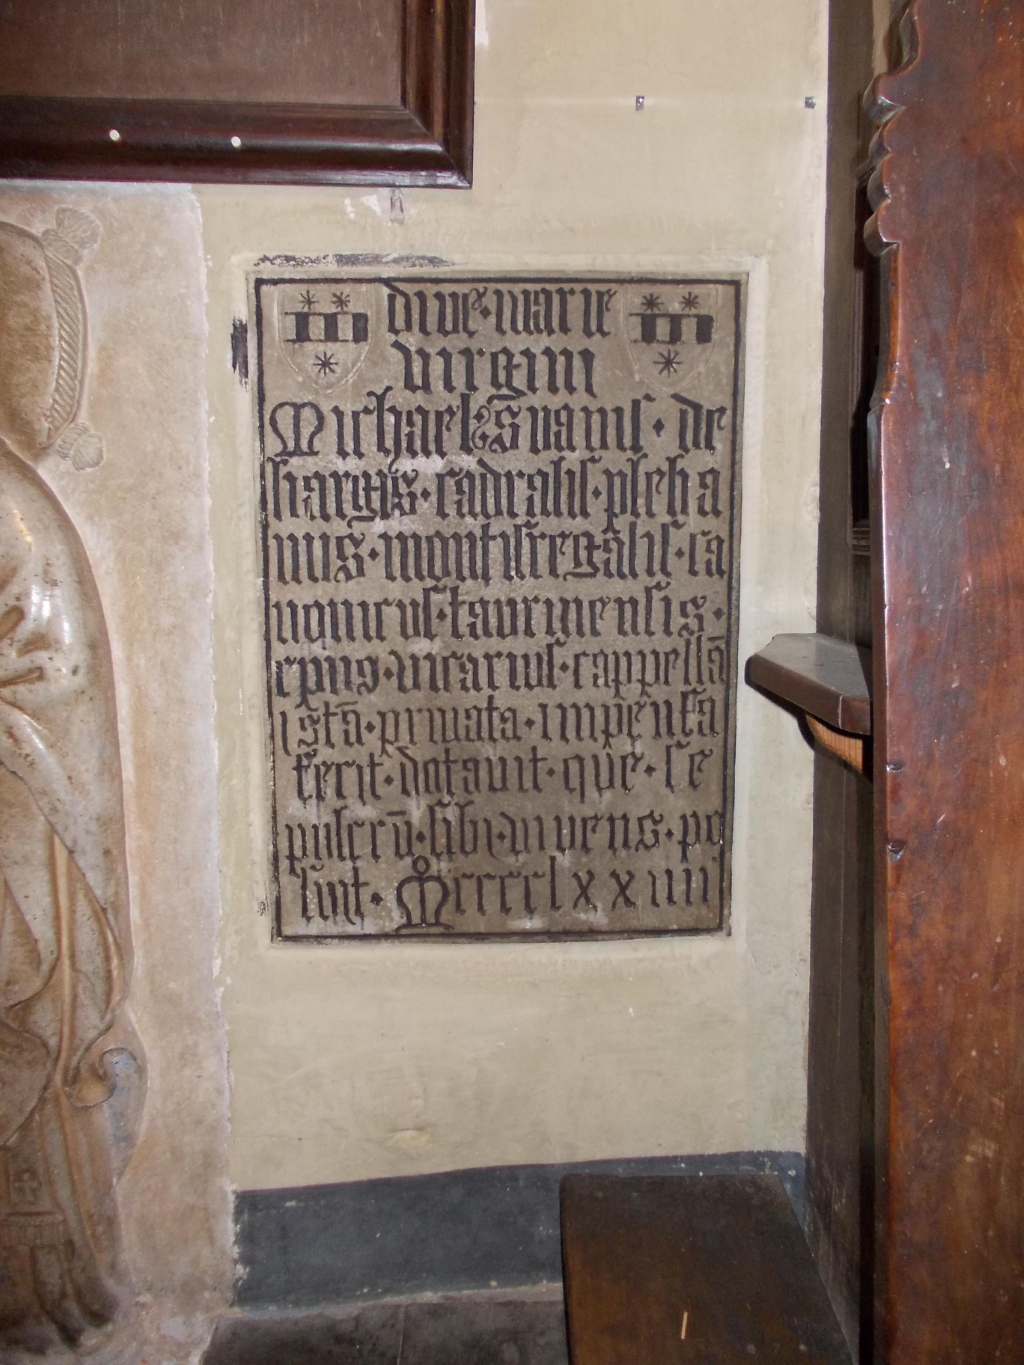 dive · marie
virgini
Michael · suavis · de
hargis · cadralis · pleba
nus · montisregalis · ca
nonicus · taurinensis ·
epus · vicarius · cappellā
istā · privata · impensa
fecit · dotavit · que · se
pulcrū · sibi · vivens · po
suit · Mccccclxxiiii